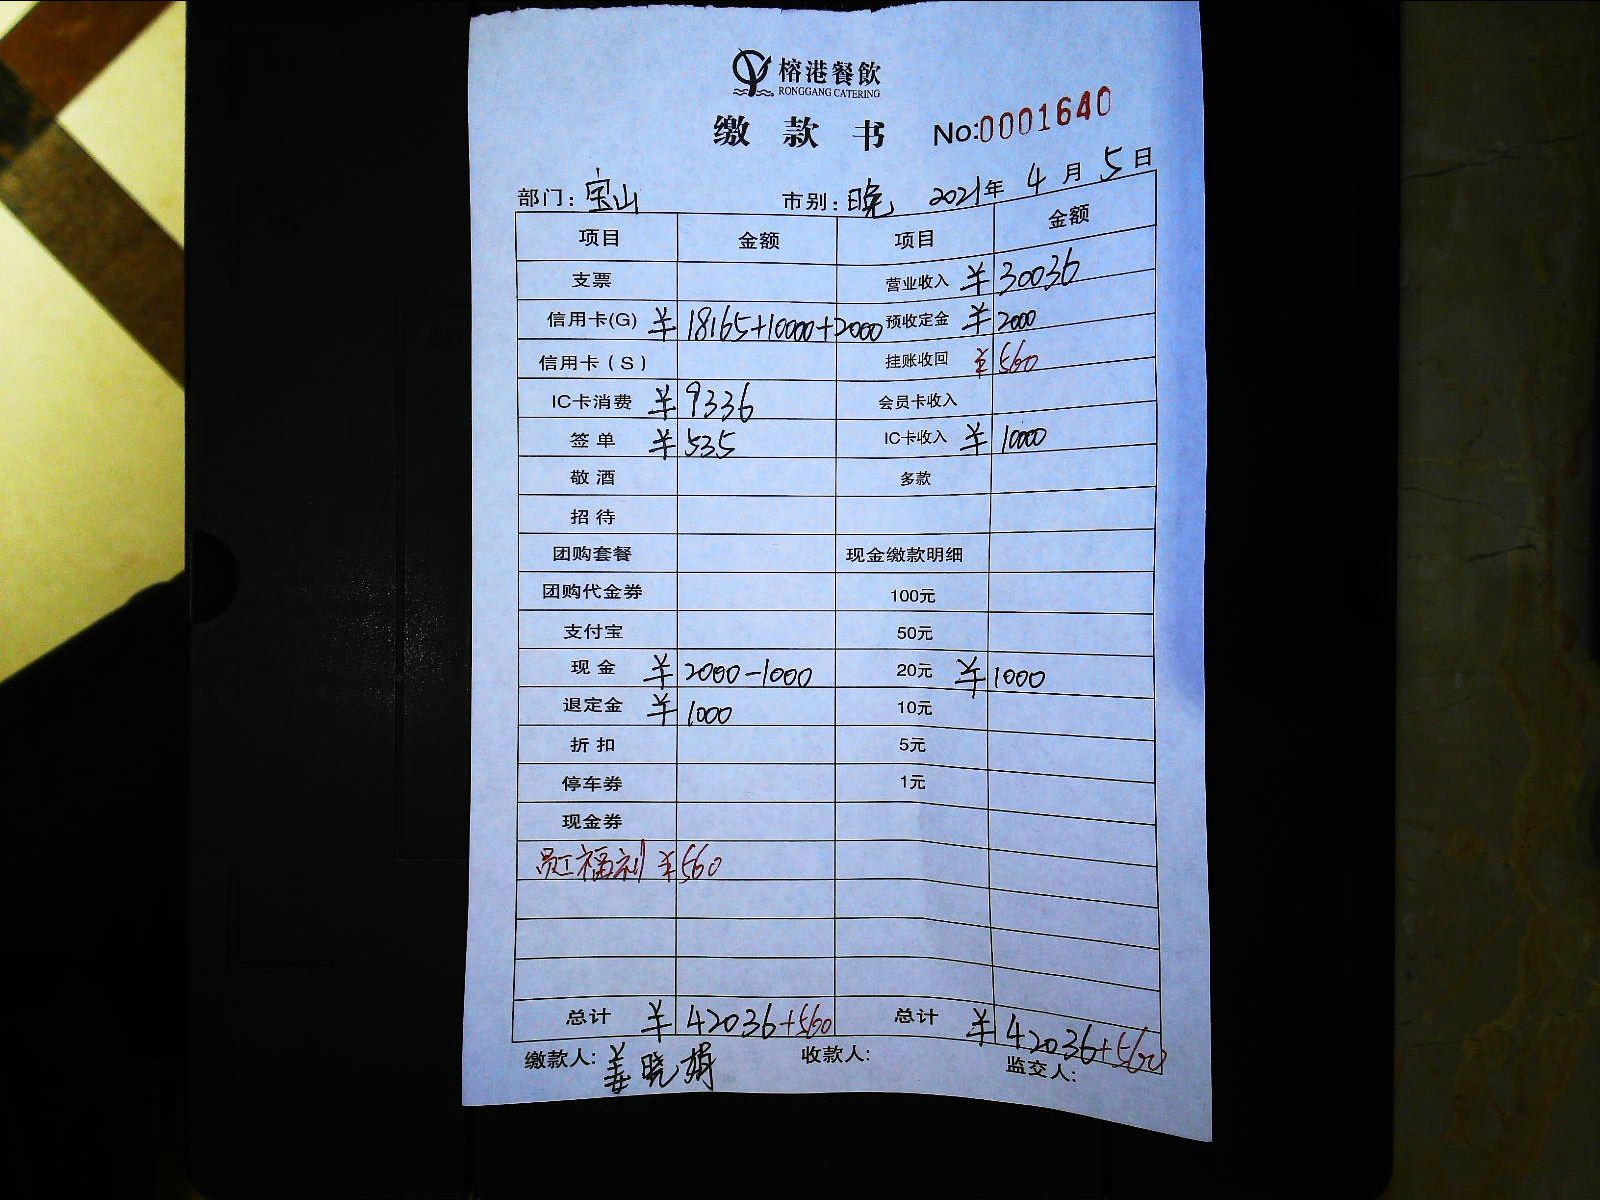 榕港餐飲
RONGGANG CATERING
缴款书 No:0001640
部门：宝山 市别：晚 2021年4月5日
项目 金额 项目 金额
支票 营业收入 ¥30036
信用卡(G) ¥18165+10000+2000 预收定金 ¥2000
信用卡(S) 挂账收回 ¥560
IC卡消费 ¥9336 会员卡收入
签单 ¥535 IC卡收入 ¥10000
敬酒 多款
招待
团购套餐 现金缴款明细
团购代金券 100元
支付宝 50元
现金 ¥2000-1000 20元 ¥1000
退定金 ¥1000 10元
折扣 5元
停车券 1元
现金券
员工福利 ¥560
总计 ¥42036+560 总计 ¥42036+560
缴款人：姜晓娟 收款人： 监交人：